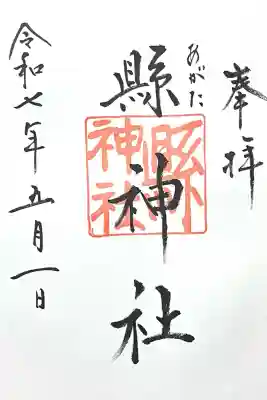 奉拝
あがた
縣神社
縣
神社
令和七年五月一日